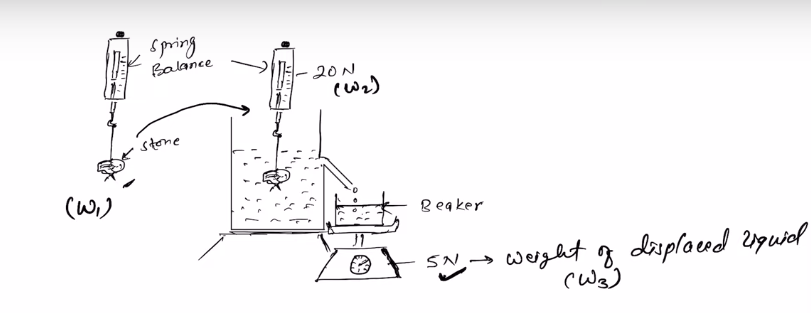 Spring
Balance
20 N
(W2)
stone
(W1)
Beaker
5N → weight of displaced liquid
(W3)